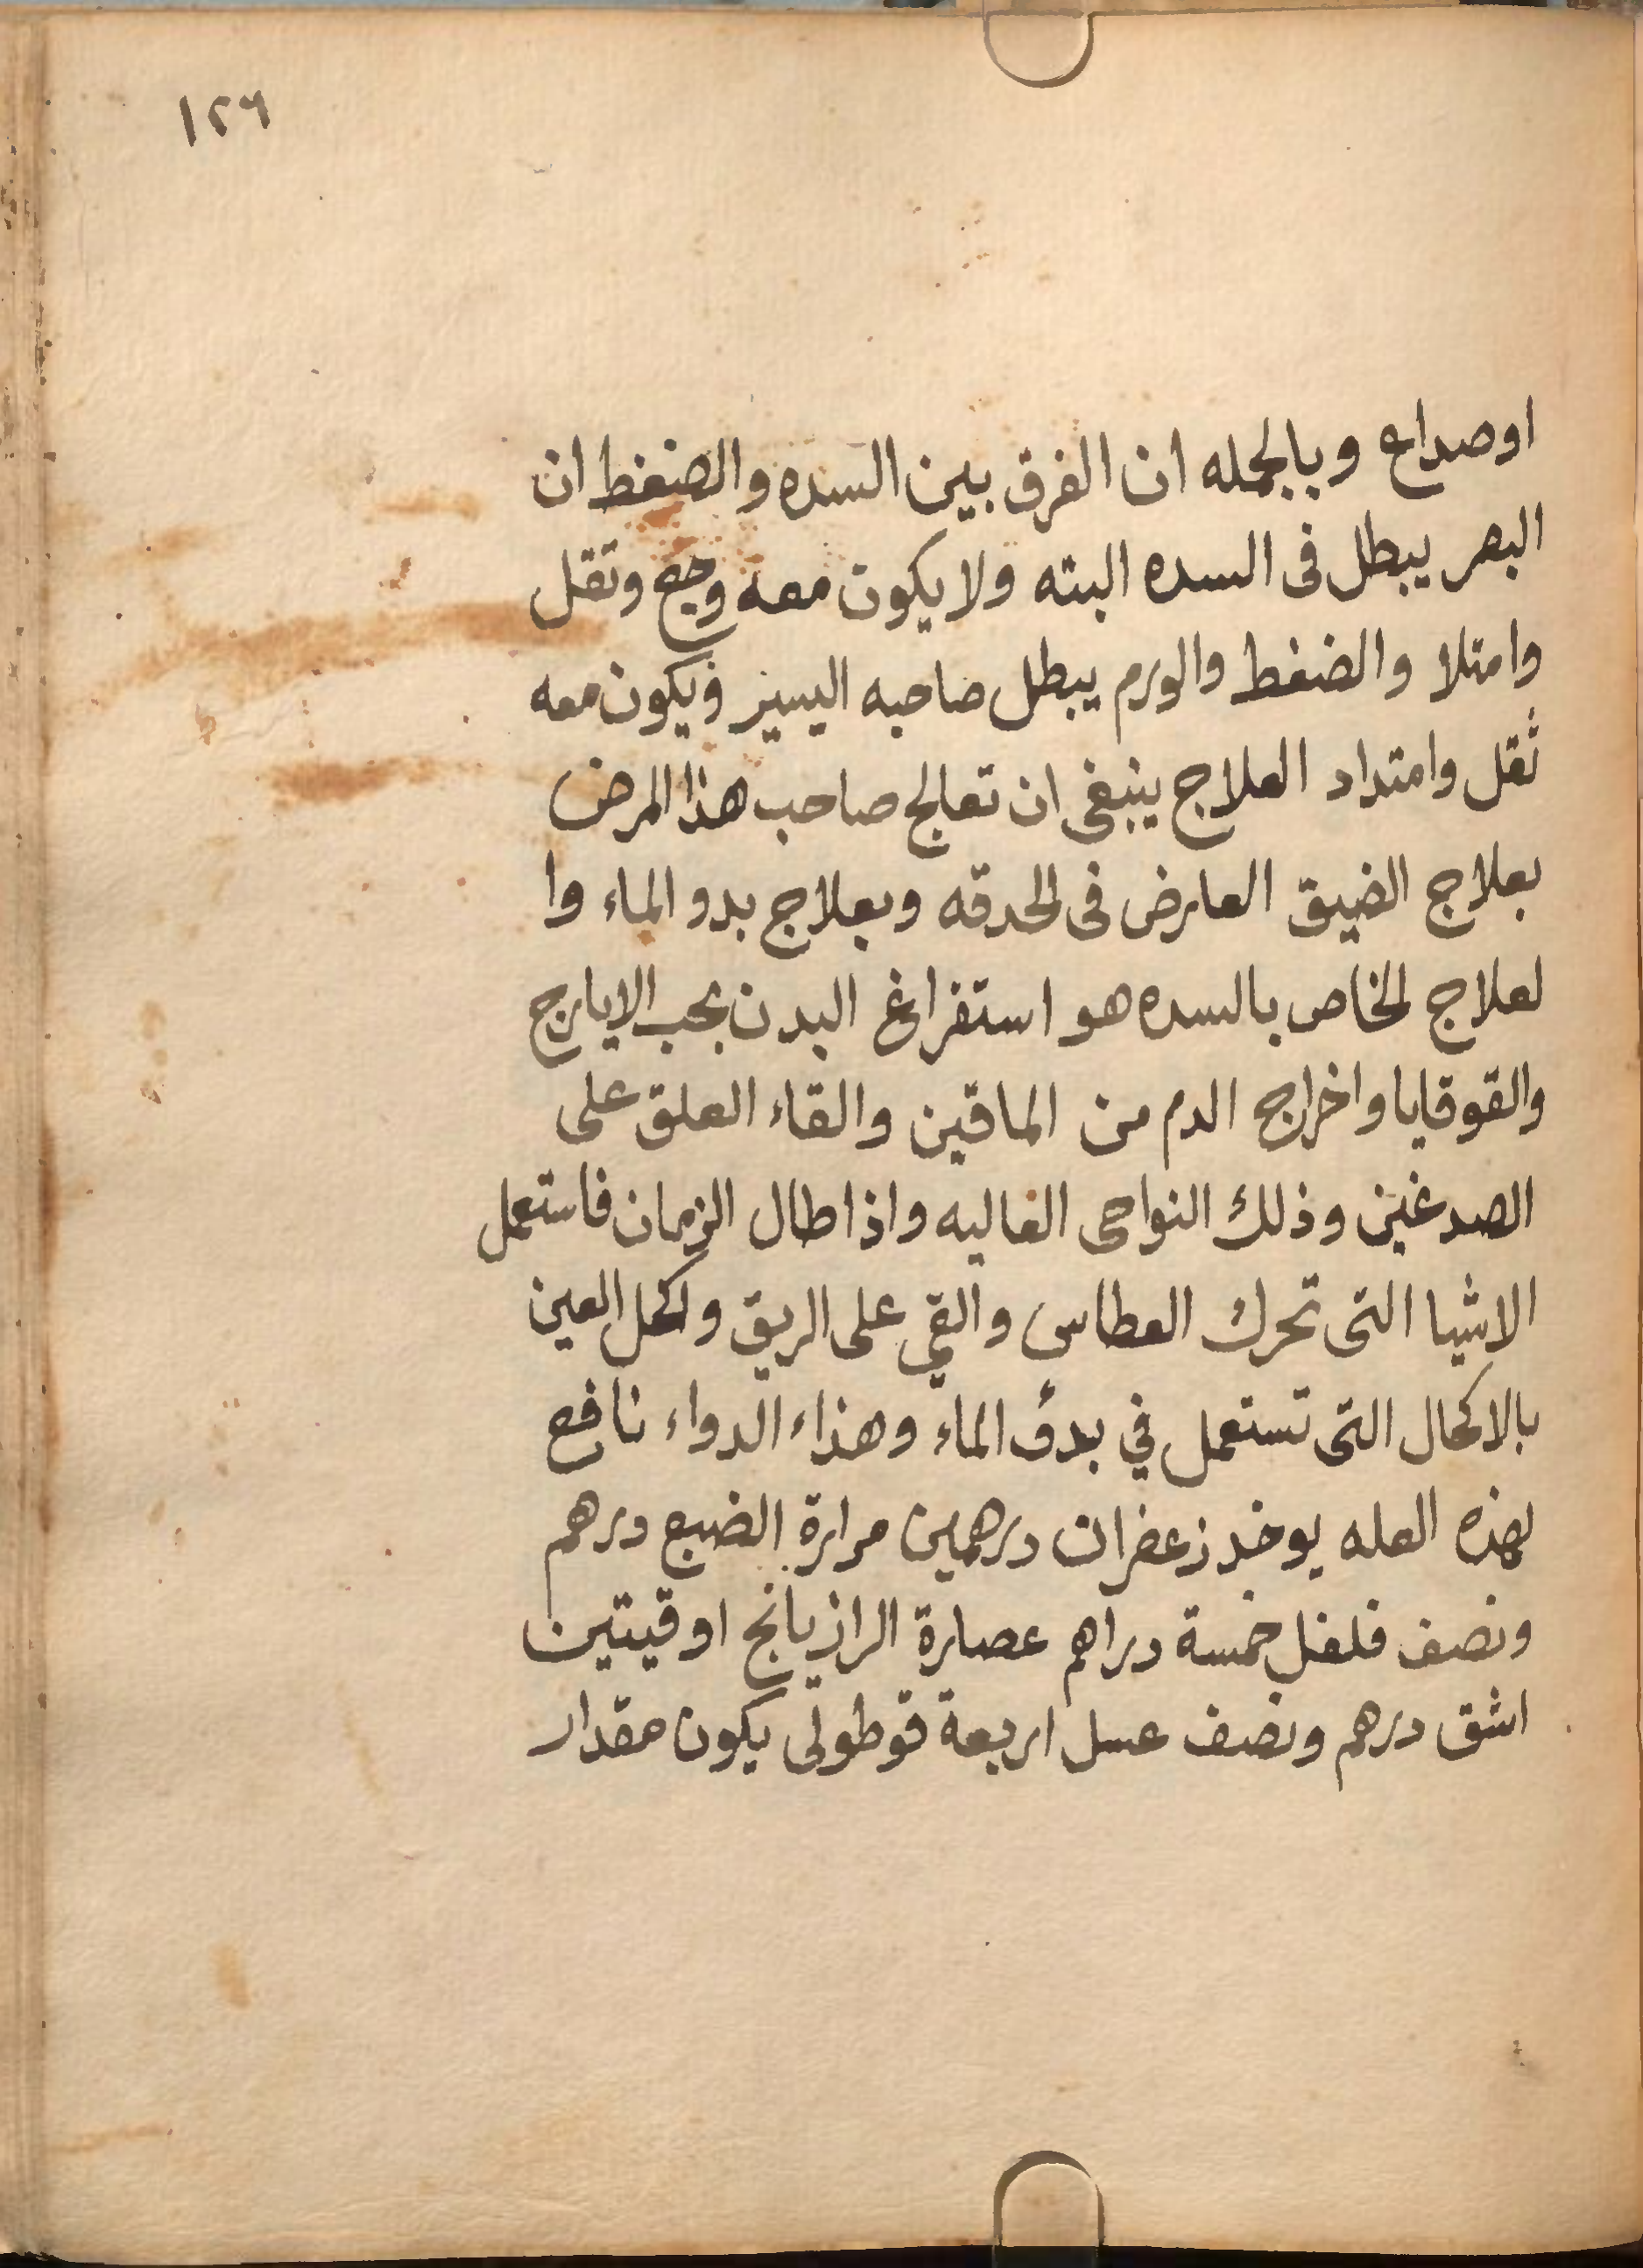 ١٢٦
او صداع وبالجمله ان الفرق بين السده والضغط ان
البصر يبطل فى السده البته ولا يكون معه وجع وتقل
وامتلا والضغط والورم يبطل صاحبه اليسير ويكون معه
ثقل وامتداد العلاج ينبغى ان تعالج صاحب هذا المرض
بعلاج الضيق العارض فى الحدقه وبعلاج بدو الماء وا
لعلاج الخاص بالسده هو استفراغ البدن بحب الايارج
والقوقايا واخراج الدم من الماقين والقاء العلق على
الصدغين وذلك النواحى الغاليه واذا طال الزمان فاستعمل
الاشيا التى تحرك العطاس والقي على الريق واكحل العين
بالاكحال التى تستعمل في بدؤ الماء وهذاء الدواء نافع
لهذه العله يوخد زعفران درهمين مرارة الضبع درهم
ونصف فلفل خمسة دراهم عصارة الرازيانج اوقيتين
اشق درهم ونصف عسل اربعة قوطولى يكون مقدار